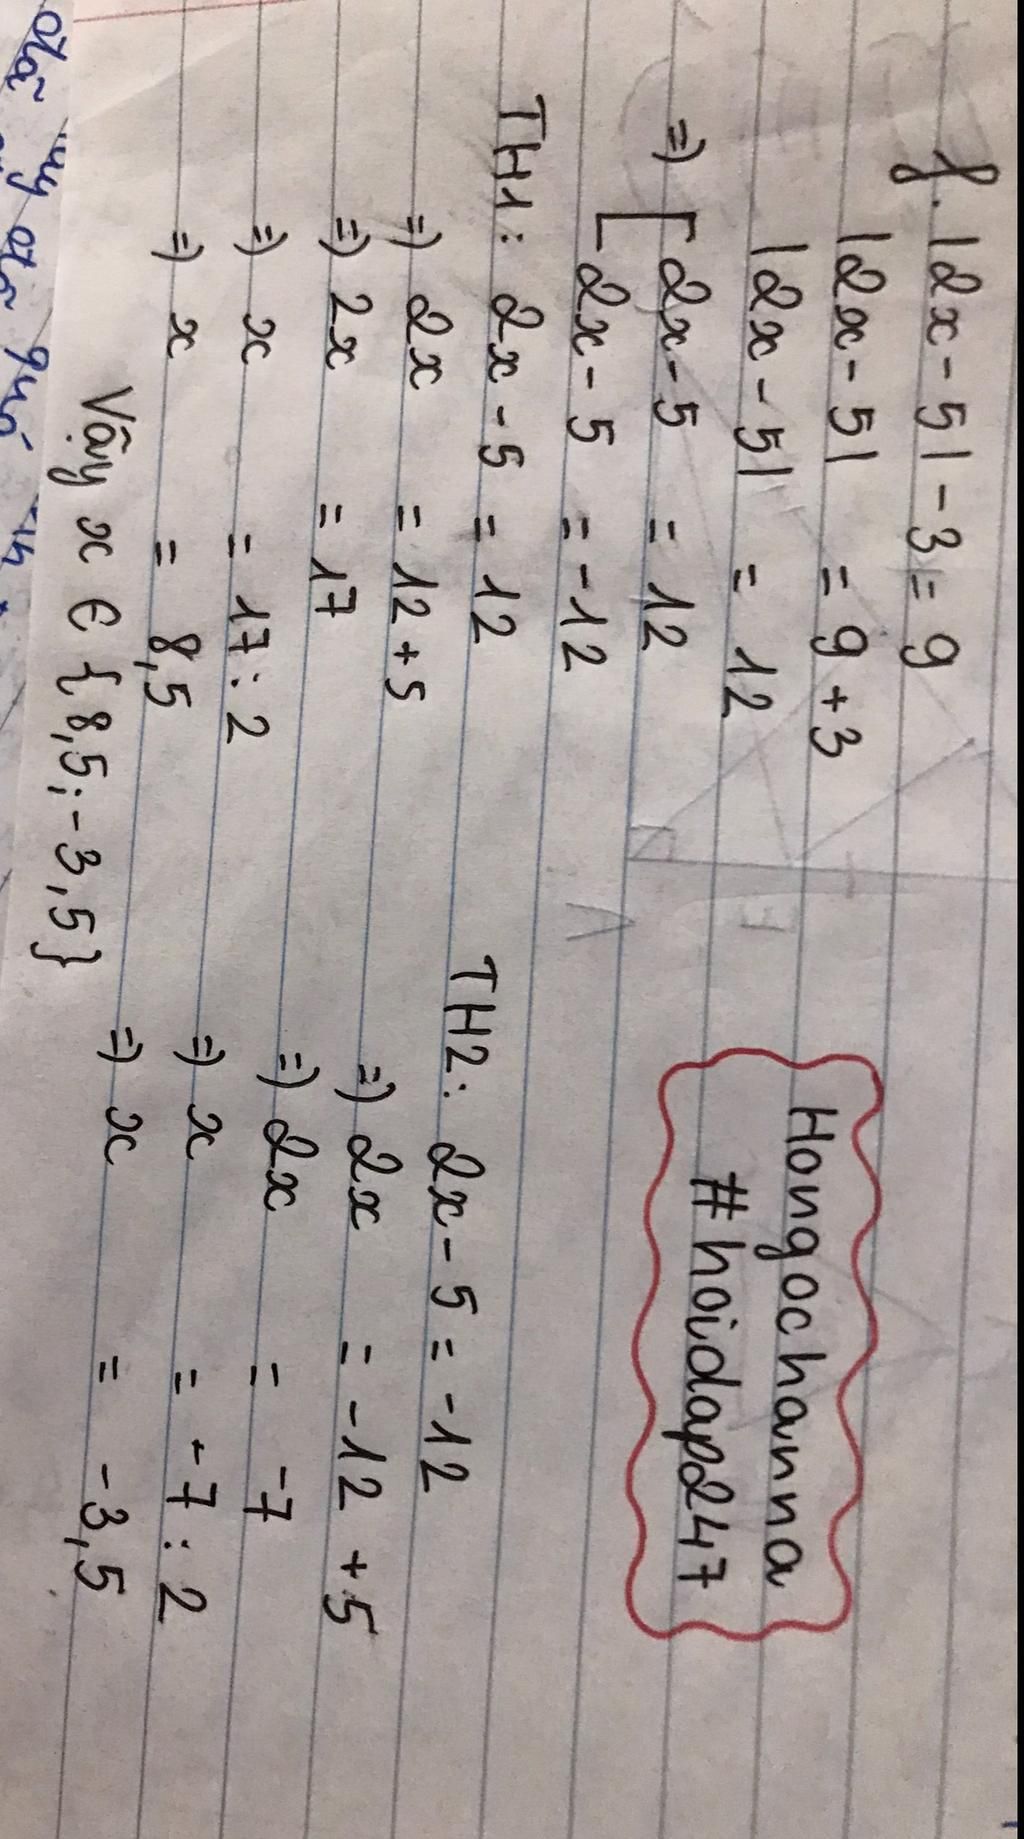 f. |2x - 5| - 3 = 9
|2x - 5| = 9 + 3
|2x - 5| = 12
=> [ 2x - 5 = 12
2x - 5 = -12
TH1: 2x - 5 = 12
=> 2x = 12 + 5
=> 2x = 17
=> x = 17 : 2
=> x = 8,5
TH2: 2x - 5 = -12
=> 2x = -12 + 5
=> 2x = -7
=> x = -7 : 2
=> x = -3,5
Vậy x ∈ {8,5; -3,5}
Hongochanna
#hoidap247